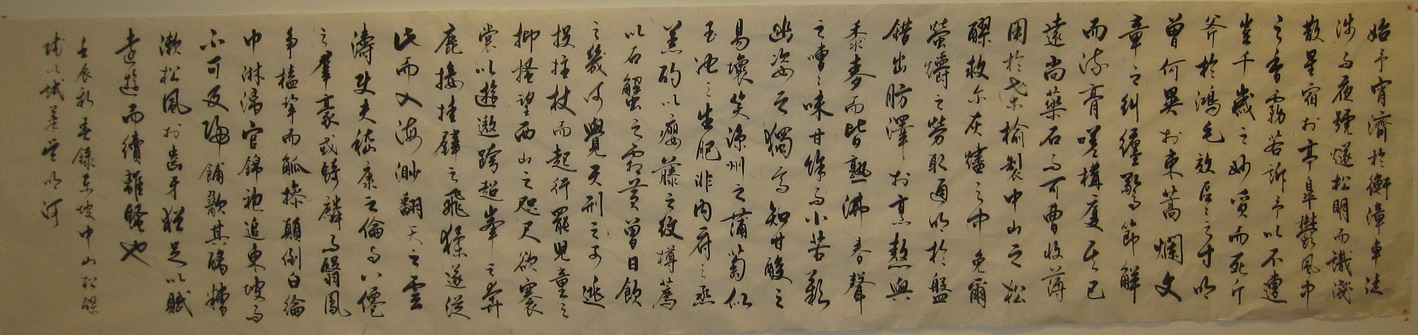 始予宵濟於衡漳車徒
涉而夜號燧松明而識淺
散星宿於亭皋鬱風中
之香霧若訴予以不遭
豈千歲之妙質而死斤
斧於鴻毛效區區之寸明
曾何異於束蒿爛文
章之糾纏驚節解
而流膏嗟構廈其已
遠尚藥石而可曹收薄
用於桑榆製中山之松
醪救尔灰燼之中免爾
螢爝之勞取通明於盤
錯出肪澤於烹熬與
黍麥而皆熟沸舂聲
之嘈嘈味甘餘而小苦歎
幽姿之獨高知甘酸之
易壞笑涼州之蒲萄似
玉池之生肥非內府之蒸
羔酌以癭藤之紋樽薦
以石蟹之霜螯曾日飲
之幾何覺天刑之可逃
投拄杖而起行罷兒童之
抑搔望西山之咫尺欲褰
裳以遊遨跨超峯之奔
鹿接挂壁之飛猱遂從
此而入海渺翻天之雲
濤使夫嵇康之倫與八僊
之羣豪或騎麟而翳鳳
爭榼挈而瓢操顛倒白綸
巾淋漓宮錦袍追東坡而
不可及歸餔歠其醨糟
漱松風於齒牙猶足以賦
遠遊而續離騷也
壬辰新春錄東坡中山松醪
賦以試